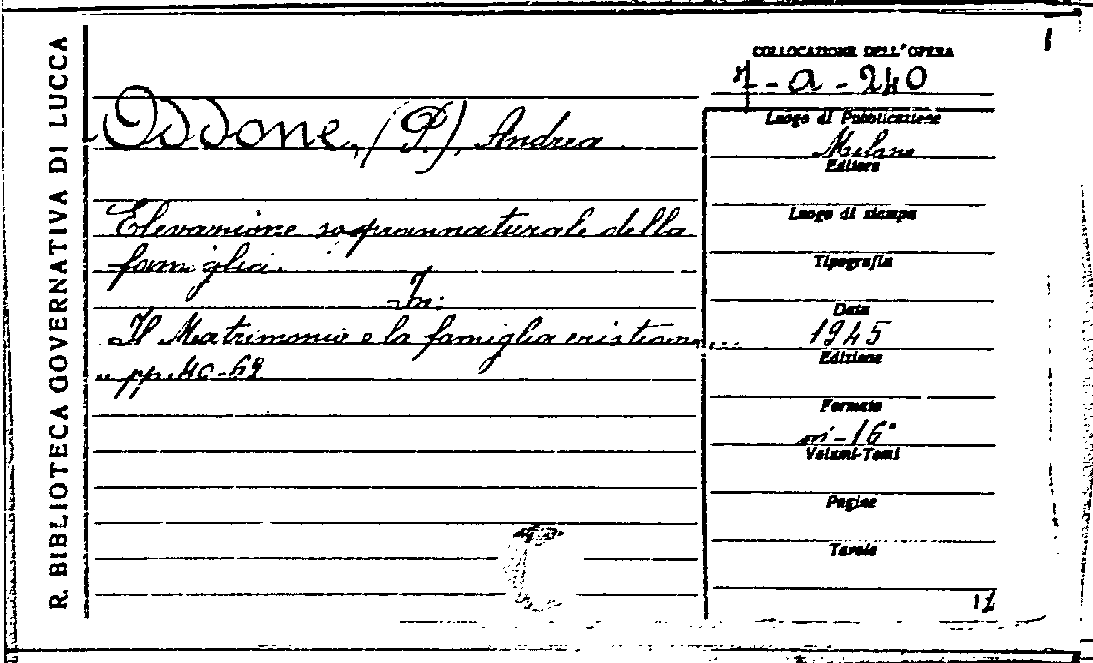 R. BIBLIOTECA GOVERNATIVA DI LUCCA
COLLOCAZIONE DELL'OPERA
7-a-240
Oddone, (P.), Andrea
Elevazione soprannaturale della
famiglia.
In:
Il Matrimonio e la famiglia cristiana...
pp. 40-69
Luogo di Pubblicazione
Milano
Editore
Luogo di stampa
Tipografia
Data
1945
Edizione
Formato
in-16°
Volumi-Tomi
Pagine
Tavole